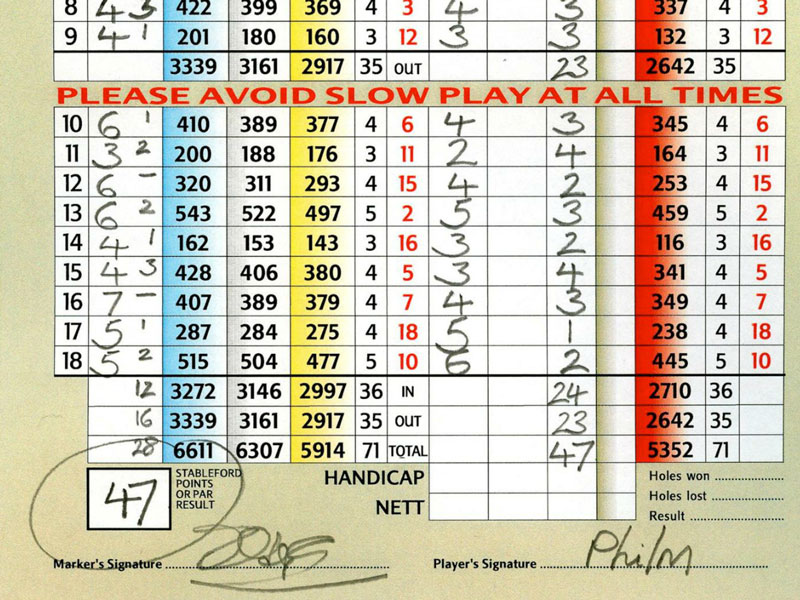 8 4 3 422 399 369 4 3 4 3 337 4 3
9 4 1 201 180 160 3 12 3 3 132 3 12
3339 3161 2917 35 OUT 23 2642 35
PLEASE AVOID SLOW PLAY AT ALL TIMES
10 6 1 410 389 377 4 6 4 3 345 4 6
11 3 2 200 188 176 3 11 2 4 164 3 11
12 6 - 320 311 293 4 15 4 2 253 4 15
13 6 2 543 522 497 5 2 5 3 459 5 2
14 4 1 162 153 143 3 16 3 2 116 3 16
15 4 3 428 406 380 4 5 3 4 341 4 5
16 7 - 407 389 379 4 7 4 3 349 4 7
17 5 1 287 284 275 4 18 5 1 238 4 18
18 5 2 515 504 477 5 10 6 2 445 5 10
12 3272 3146 2997 36 IN 24 2710 36
16 3339 3161 2917 35 OUT 23 2642 35
28 6611 6307 5914 71 TOTAL 47 5352 71
47
STABLEFORD
POINTS
OR PAR
RESULT
HANDICAP
NETT
Holes won
Holes lost
Result
Marker's Signature
Player's Signature Phil M